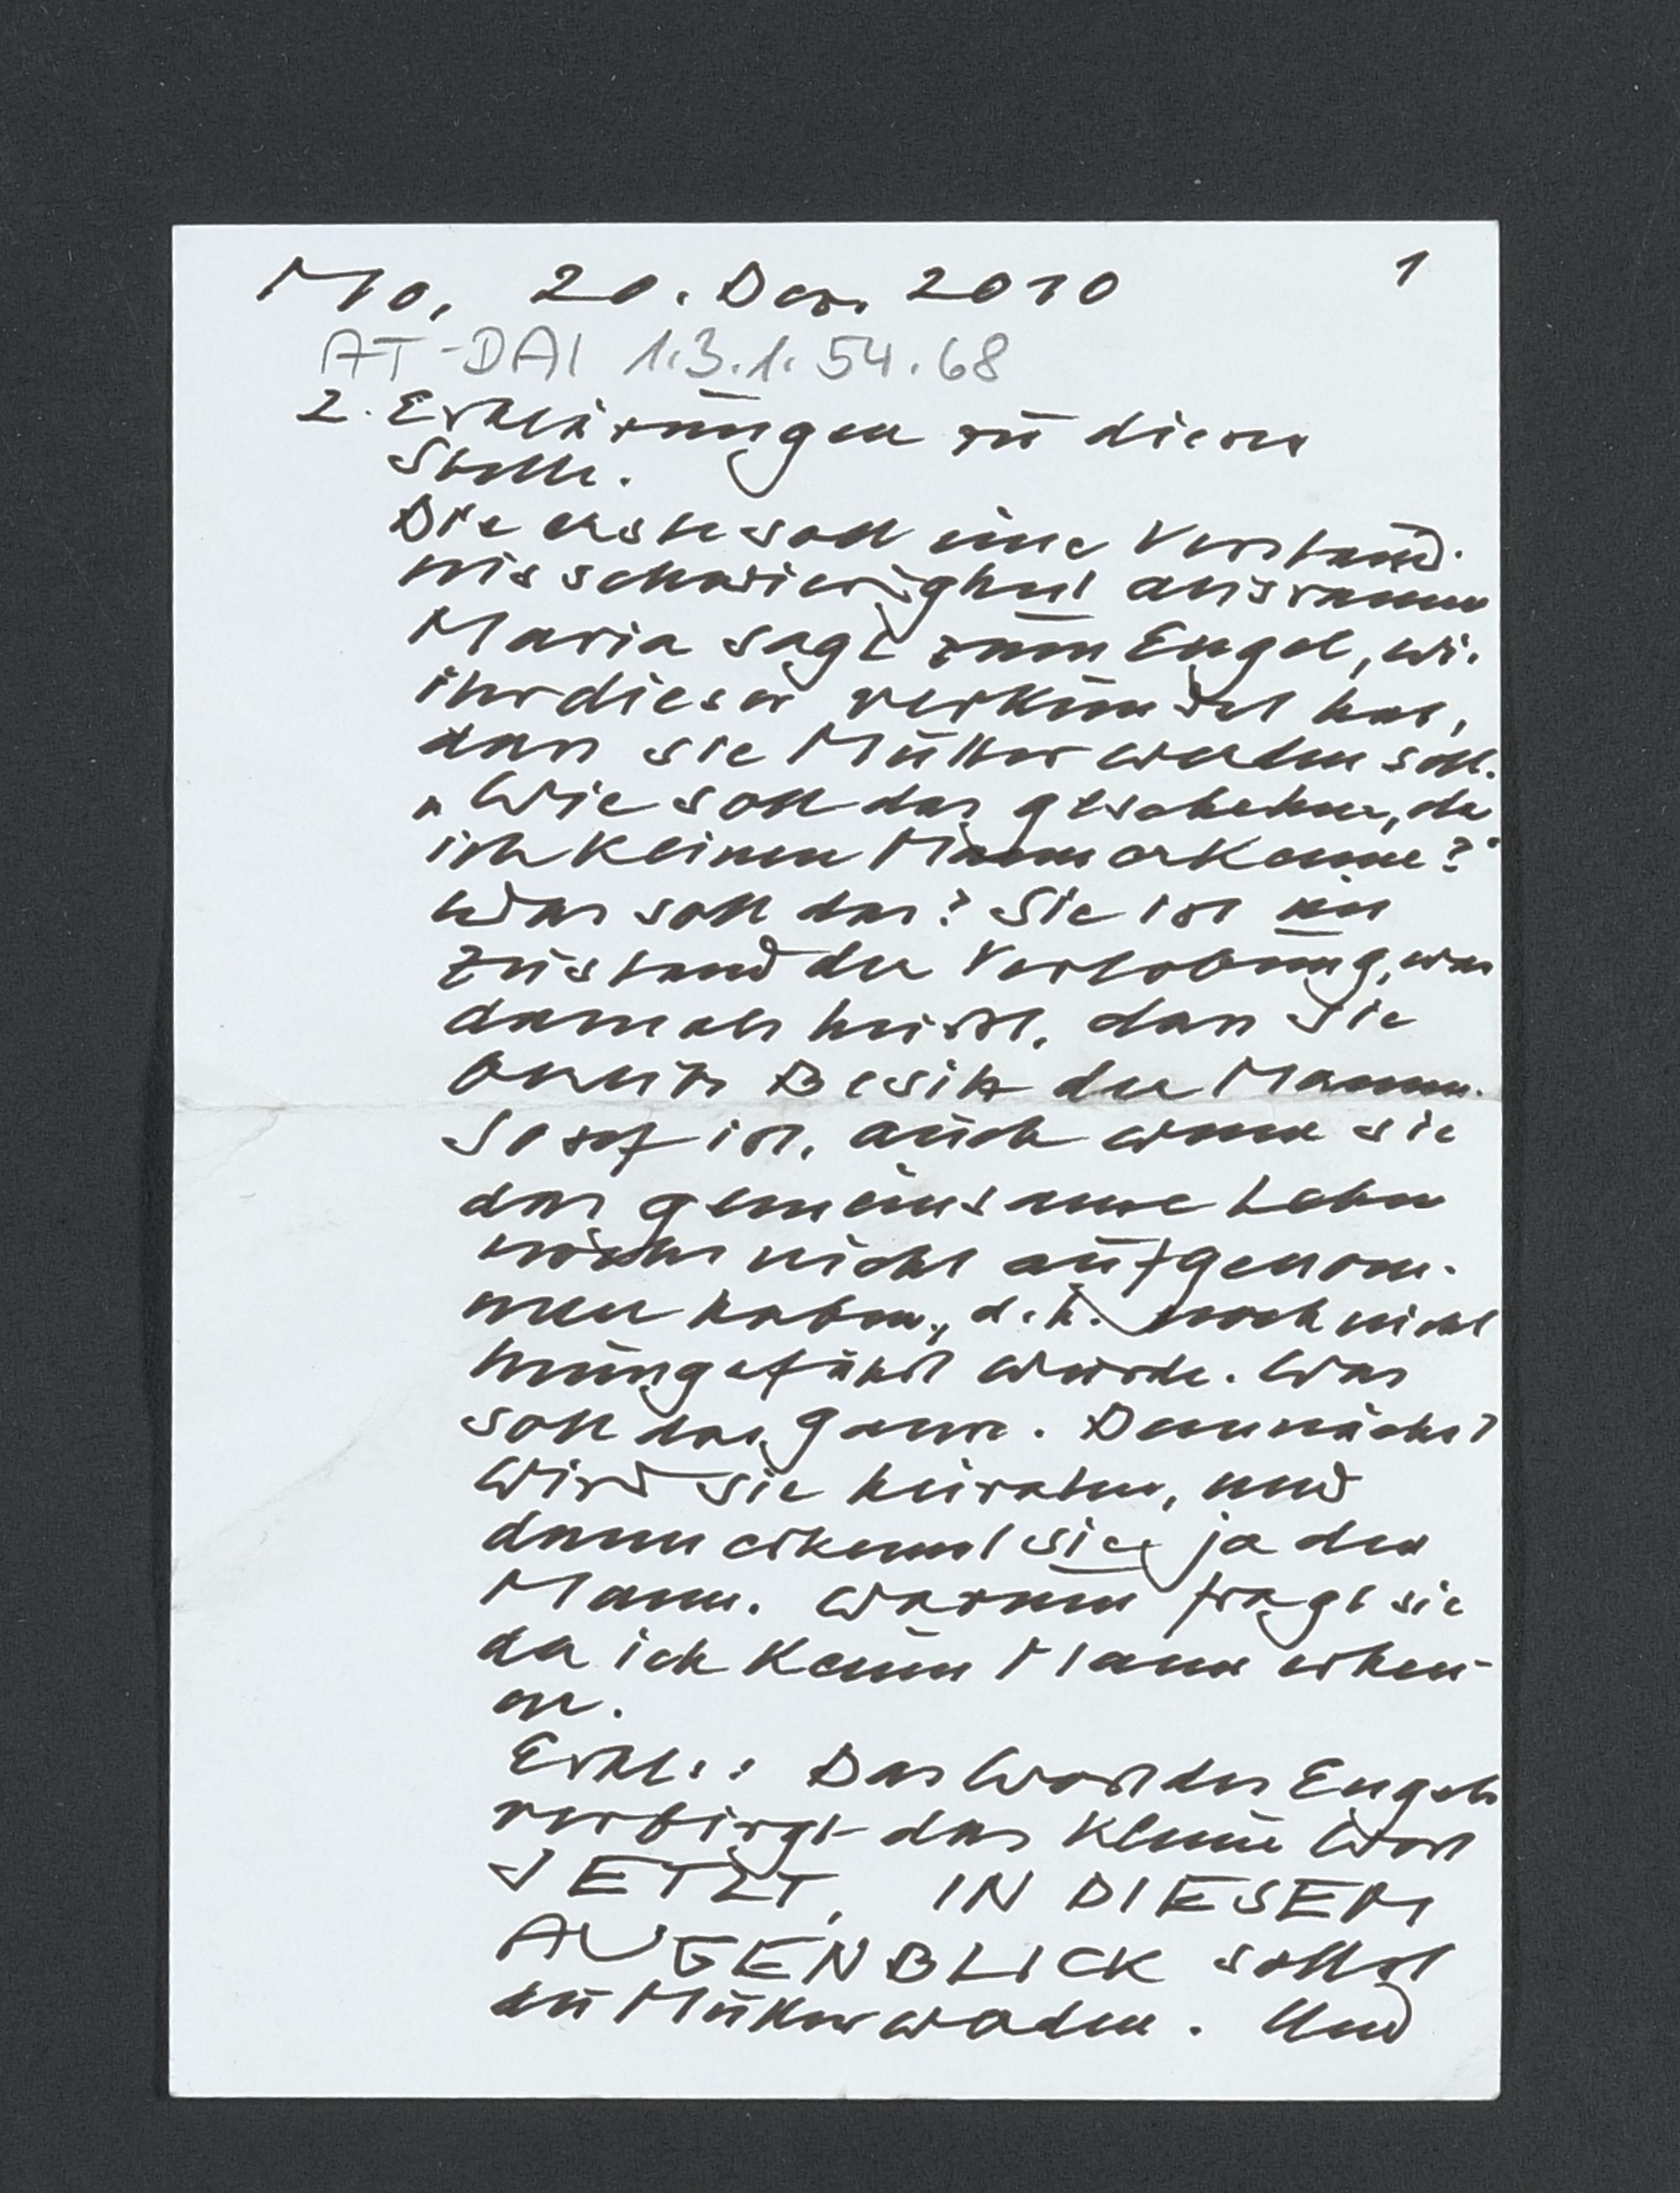 Mo, 20. Dez. 2010 1
AT-DAI 1.3.1.54.68
2. Erklärungen zu dieser
Stelle.
Die erste soll eine Verständ-
nisschwierigkeit ausräumen
Maria sagt zum Engel, wie
ihr dieser verkündet hat,
dass sie Mutter werden soll.
"Wie soll das geschehen, da
ich keinen Mann erkenne?"
Was soll das? Sie ist im
Zustand der Verlobung, was
damals heisst, dass sie
bereits Besitz des Mannes
Josef ist, auch wenn sie
das gemeinsame Leben
noch nicht aufgenom-
men haben, d.h. noch nicht
heimgeführt wurde. Was
soll das ganze. Demnächst
wird sie heiraten, und
dann erkennt sie ja den
Mann. Warum fragt sie
da ich keinen Mann erken-
ne.
Erkl.: Das Wort des Engels
verbirgt das kleine Wort
JETZT, IN DIESEM
AUGENBLICK sollst
du Mutter werden. Und